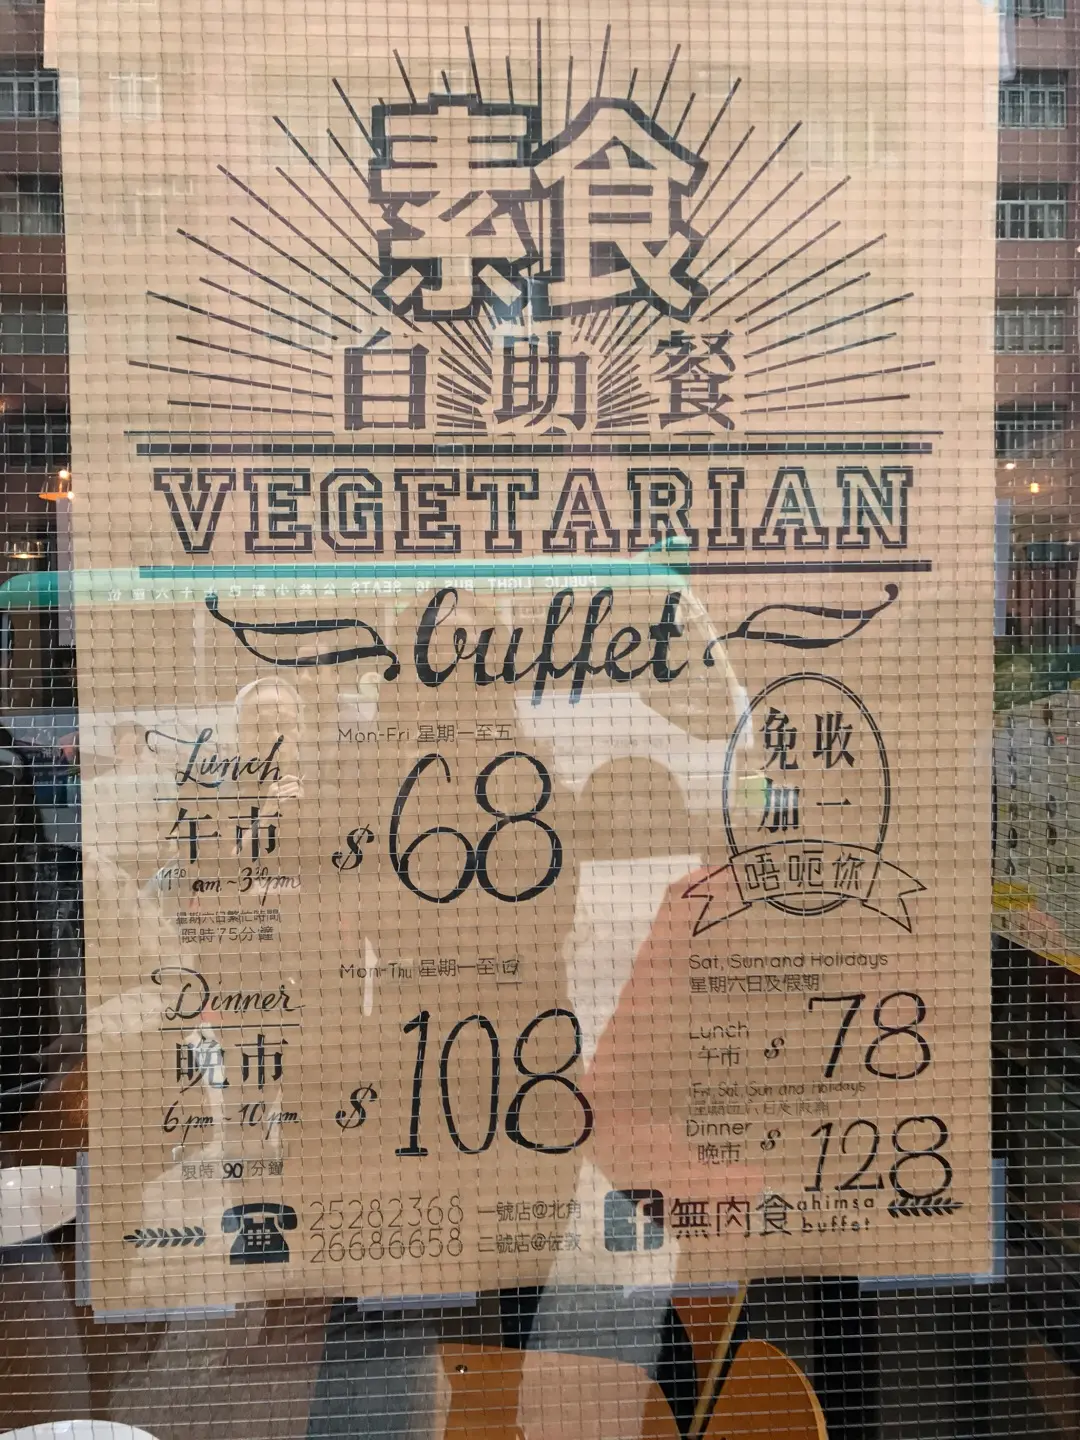 素食
自助餐
VEGETARIAN
PUBLIC LIGHT BUS 16 SEATS 公共小型巴士十六座位
buffet
Lunch
午市
11:30 am ~ 3:30pm
星期六日繁忙時間
限時75分鐘
Mon-Fri 星期一至五
$ 68
免收
加一
唔呃你
Dinner
晚市
6 pm ~ 10 pm
限時 90 分鐘
Mon-Thu 星期一至四
$ 108
Sat, Sun and Holidays
星期六日及假期
Lunch
午市 $ 78
Fri, Sat, Sun and Holidays
星期五六日及假期
Dinner
晚市 $ 128
25282368 一號店@北角
26686658 二號店@佐敦
f 無肉食 ahimsa
buffet